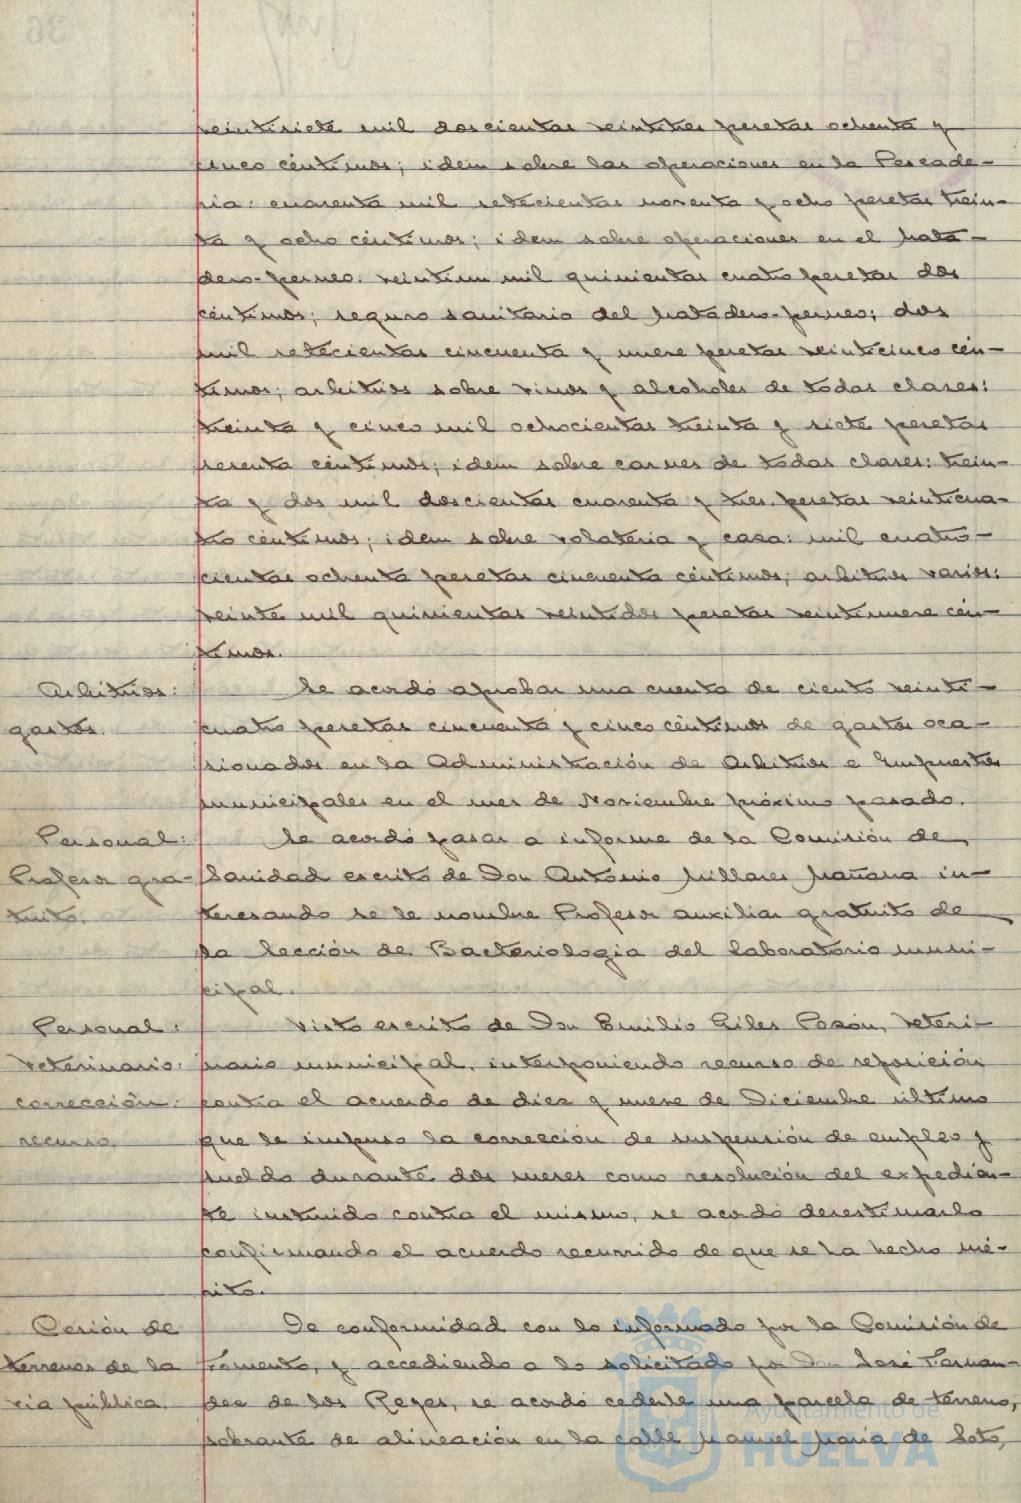 veintisiete mil doscientas veintitres pesetas ochenta y
cinco céntimos; idem sobre las operaciones en la Pescade-
ria: cuarenta mil setecientas noventa y ocho pesetas trein-
ta y ocho céntimos; idem sobre operaciones en el Mata-
dero-perneo: veintiun mil quinientas cuatro pesetas dos
céntimos; seguro sanitario del Matadero-perneo; dos
mil setecientas cincuenta y nueve pesetas veinticinco cén-
timos; arbitrios sobre vinos y alcoholes de todas clases:
treinta y cinco mil ochocientas treinta y siete pesetas
sesenta céntimos; idem sobre carnes de todas clases: trein-
ta y dos mil doscientas cuarenta y tres pesetas veinticua-
tro céntimos; idem sobre volateria y casa: mil cuatro-
cientas ochenta pesetas cincuenta céntimos; arbitrios varios:
veinte mil quinientas veintidos pesetas veintinueve cén-
timos.
Arbitrios:
gastos.
Se acordó aprobar una cuenta de ciento veinti-
cuatro pesetas cincuenta y cinco céntimos de gastos oca-
sionados en la Administración de Arbitrios e Impuestos
municipales en el mes de Noviembre próximo pasado.
Personal:
Profesor gra-
tuito.
Se acordó pasar a informe de la Comisión de
Sanidad escrito de Don Antonio Millares Mañana in-
teresando se le nombre Profesor auxiliar gratuito de
la Sección de Bacteriologia del laboratorio muni-
cipal.
Personal:
Veterinario:
corrección:
recurso.
Visto escrito de Don Emilio Giles Pazón, Veteri-
nario municipal, interponiendo recurso de reposición
contra el acuerdo de diez y nueve de Diciembre último
que le impuso la corrección de suspensión de empleo y
sueldo durante dos meses como resolución del expedien-
te instruido contra el mismo, se acordó desestimarlo
confirmando el acuerdo recurrido de que se ha hecho mé-
rito.
Cesión de
terrenos de la
via pública.
De conformidad con lo informado por la Comisión de
Fomento, y accediendo a lo solicitado por Don José Fernan-
dez de los Reyes, se acordó cederle una parcela de terreno,
sobrante de alineación en la calle Manuel Maria de Soto,
Ayuntamiento de
HUELVA